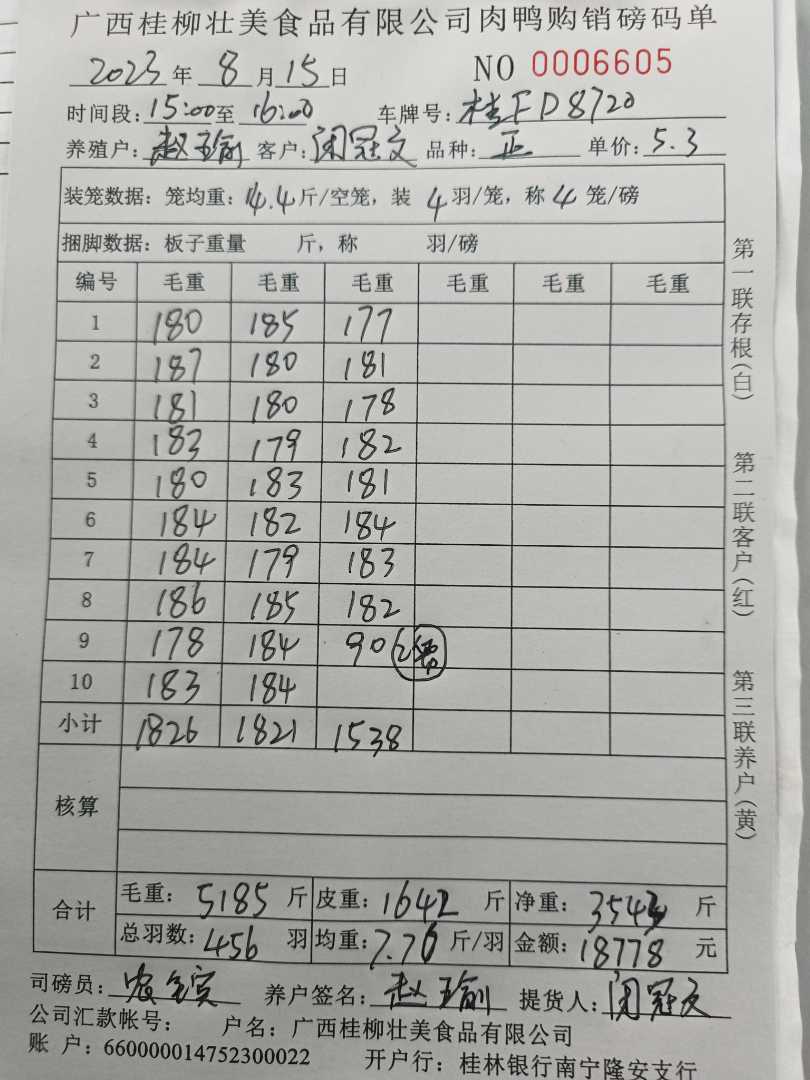 广西桂柳壮美食品有限公司肉鸭购销磅码单
2023年 8月15日 NO 0006605
时间段:15:00至 16:00 车牌号:桂FD8720
养殖户:赵玉瑜 客户:闭冠文 品种:正 单价:5.3
装笼数据:笼均重:14.4斤/空笼,装 4羽/笼,称4笼/磅
捆脚数据:板子重量 斤,称 羽/磅
编号 毛重 毛重 毛重 毛重 毛重 毛重
1 180 185 177
2 187 180 181
3 181 180 178
4 183 179 182
5 180 183 181
6 184 182 184
7 184 179 183
8 186 185 182
9 178 184 90
10 183 184
小计 1826 1821 1538
核算
合计 毛重:5185斤 皮重:1642斤 净重:3543斤
总羽数:456羽 均重:7.76斤/羽 金额:18778元
司磅员: 养户签名: 提货人:闭冠文
公司汇款帐号: 户名:广西桂柳壮美食品有限公司
账 户:660000014752300022 开户行:桂林银行南宁隆安支行
第一联存根(白) 第二联客户(红) 第三联养户(黄)